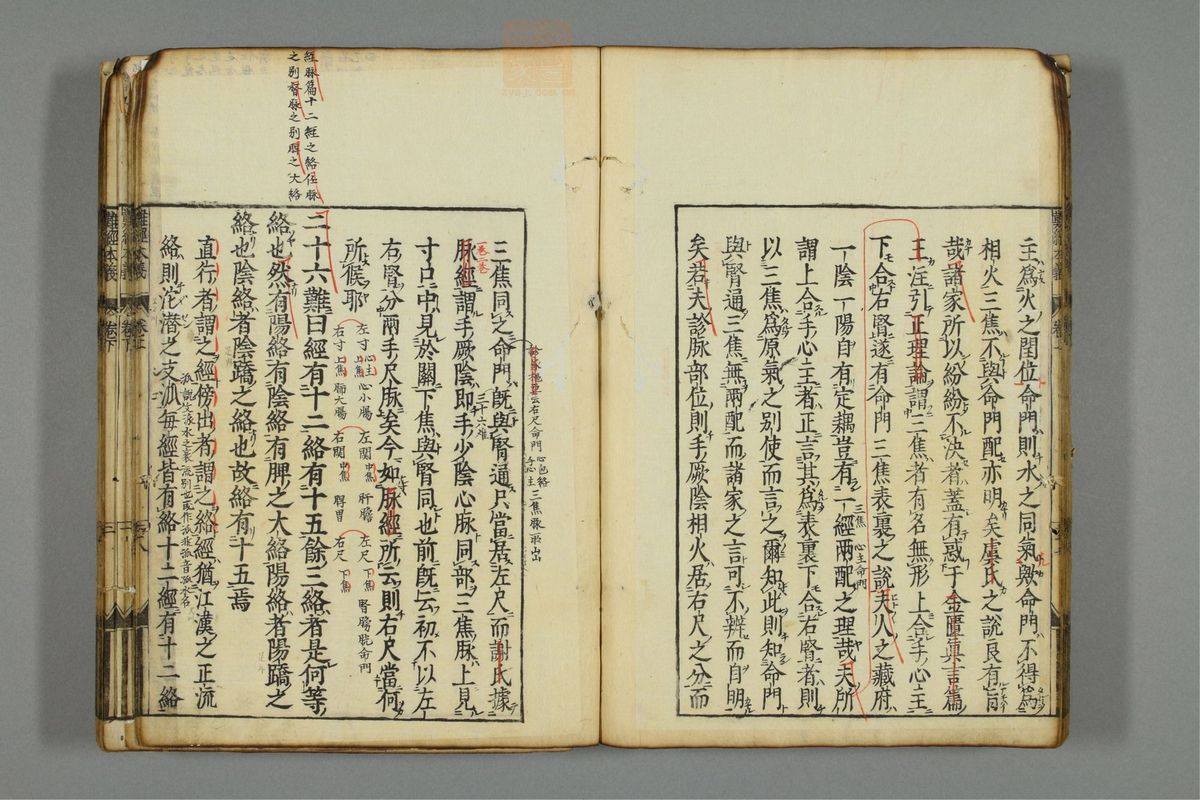 主為火之閏位命門則水之同氣歟命門不得為
相火三焦不與命門配亦明矣虞氏之說良有旨
哉諸家所以紛紛不決者蓋有惑于金匱真言篇
王注引正理論謂三焦者有名無形上合手心主
下合右腎遂有命門三焦表裏之說夫人之藏府
一陰一陽自有定耦豈有一經兩配之理哉夫所
謂上合手心主者正言其為表裏下合右腎者則
以三焦為原氣之別使而言之爾知此則知命門
與腎通三焦無兩配而諸家之言可不辨而自明
矣若夫診脉部位則手厥陰相火居右尺之分而
三焦同之命門既與腎通只當居左尺而謝氏據
脉經謂手厥陰即手少陰心脉同部三焦脉上見
寸口中見於關下焦與腎同也前既云初不以左
右腎分兩手尺脉矣今如脉經所云則右尺當何
所候耶
左寸 心主 上焦 心小腸
右寸 上焦 肺大腸
左関 中焦 肝膽
右関 中焦 脾胃
左尺 下焦 腎膀胱命門
右尺 下焦
二十六難曰經有十二絡有十五餘三絡者是何等
絡也然有陽絡有陰絡有脾之大絡陽絡者陽蹻之
絡也陰絡者陰蹻之絡也故絡有十五焉
直行者謂之經傍出者謂之絡經猶江漢之正流
絡則沱潜之支派每經皆有絡十二經有十二絡
經脉篇十二經之絡任脉
之別督脉之別脾之大絡
三十六難
三焦
心主命門
難經本義
卷下